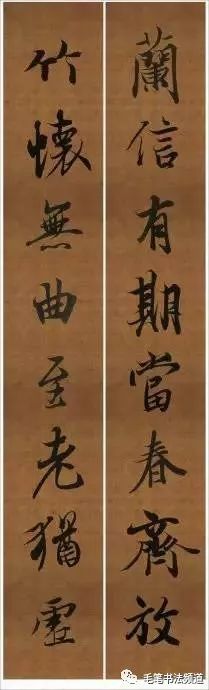 蘭信有期當春齊放
竹懷無曲至老猶虛
毛笔书法频道